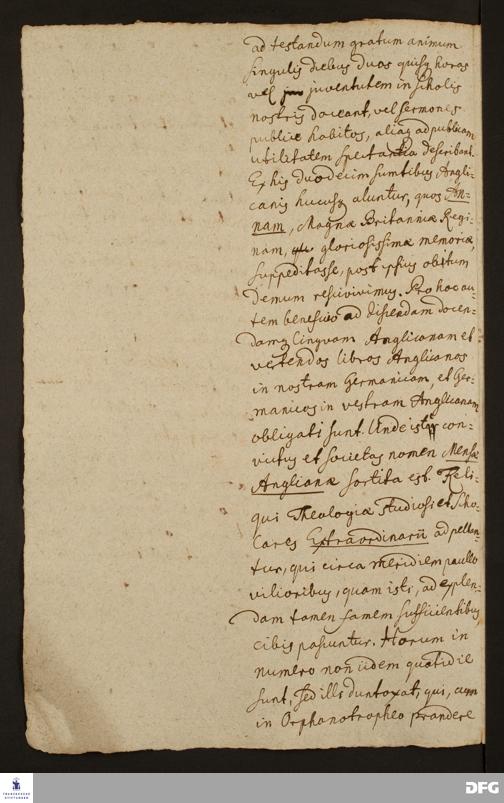 ad testandum gratum animum
singulis diebus duas quisq horas
vel juventutem in scholis
nostris doceant, vel sermones
publice habitos, aliaq ad publicam
utilitatem spectantia describant.
Ex his duodecim sumtibus Angli-
canis hucusq aluntur, quos An-
nam, Magnæ Britanniæ Regi-
nam, gloriosissimæ memoriæ,
suppeditasse, post ipsius obitum
demum rescivimus. Pro hoc au-
tem beneficio ad discendam docen-
damq Linguam Anglicanam et
vertendos libros Anglicanos
in nostram Germanicam, et Ger-
manicos in vestram Anglicanam
obligati sunt. Unde iste con-
victus et societas nomen Mensæ
Anglicanæ sortita est. Reli-
qui Theologiæ studiosi et Scho-
lares Extraordinarii appellan-
tur, qui circa meridiem paullo
vilioribus, quam isti, ad explen-
dam tamen famem sufficientibus
cibis pascuntur. Horum in
numero non iidem quotidie
sunt, sed illi duntaxat, qui, cum
in Orphanotropheo prandere
FRANCKESCHE STIFTUNGEN
DFG